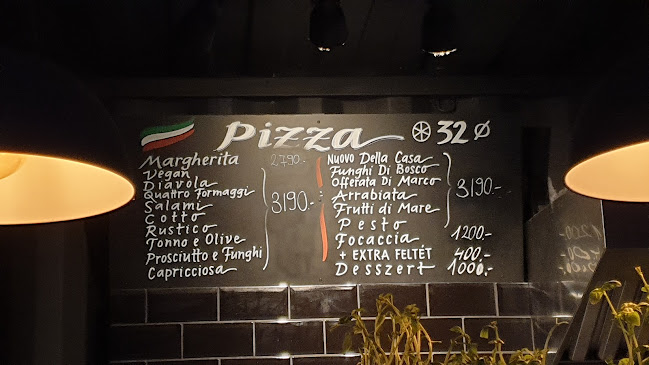 Pizza 32 ø
Margherita 2790.-
Vegan
Diavola
Quattro Formaggi
Salami 3190.-
Cotto
Rustico
Tonno e Olive
Prosciutto e Funghi
Capricciosa
Nuovo Della Casa
Funghi Di Bosco
Offerata Di Marco
Arrabiata 3190.-
Frutti di Mare
Pesto
Focaccia 1200.-
+ EXTRA FELTÉT 400.-
Desszert 1000.-